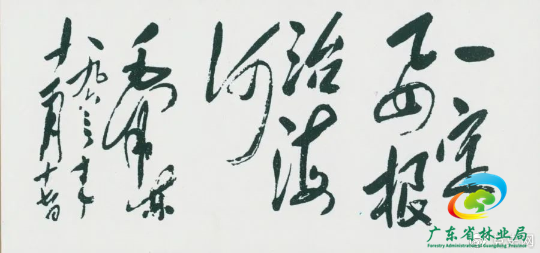 一定
要根
治海
河
毛泽东
一九六三年
十一月十七日
广东省林业局
Forestry Administration of Guangdong Province